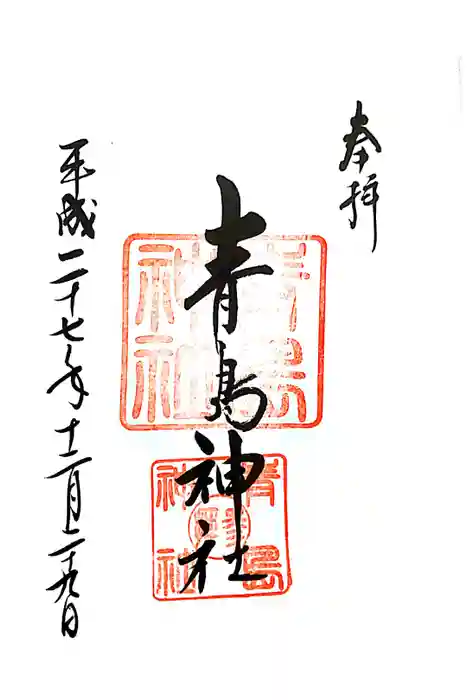 奉拝
青島神社
青島神社
青島神社
平成二十七年十二月二十九日